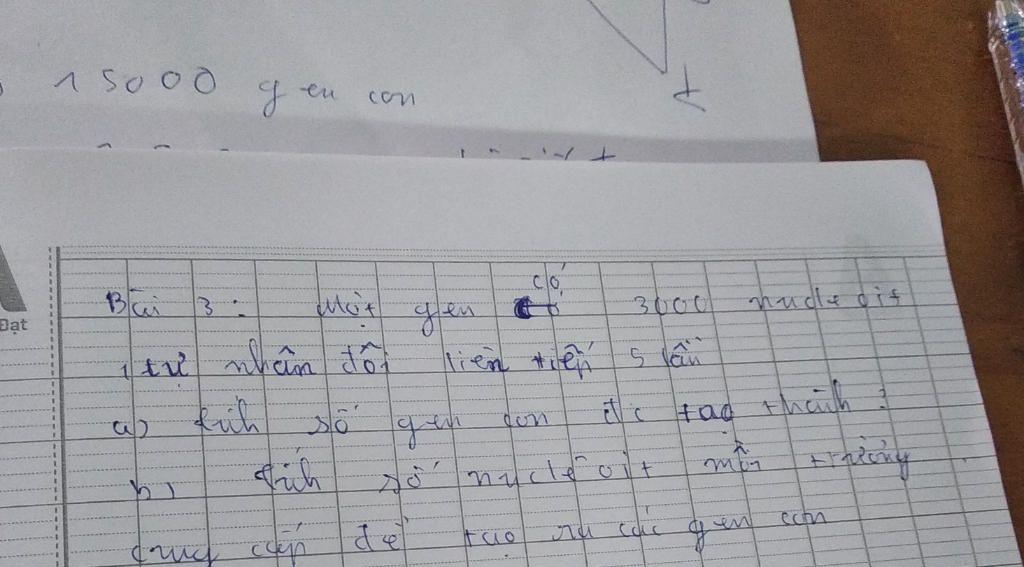 15000 gen con
Đạt
Bài 3: Một gen có 3000 nucleoit
, tự nhân đôi liên tiếp 5 lần
a) tính số gen con đc tạo thành?
b, tính số nucleoit môi trường
cung cấp để tạo ra các gen con